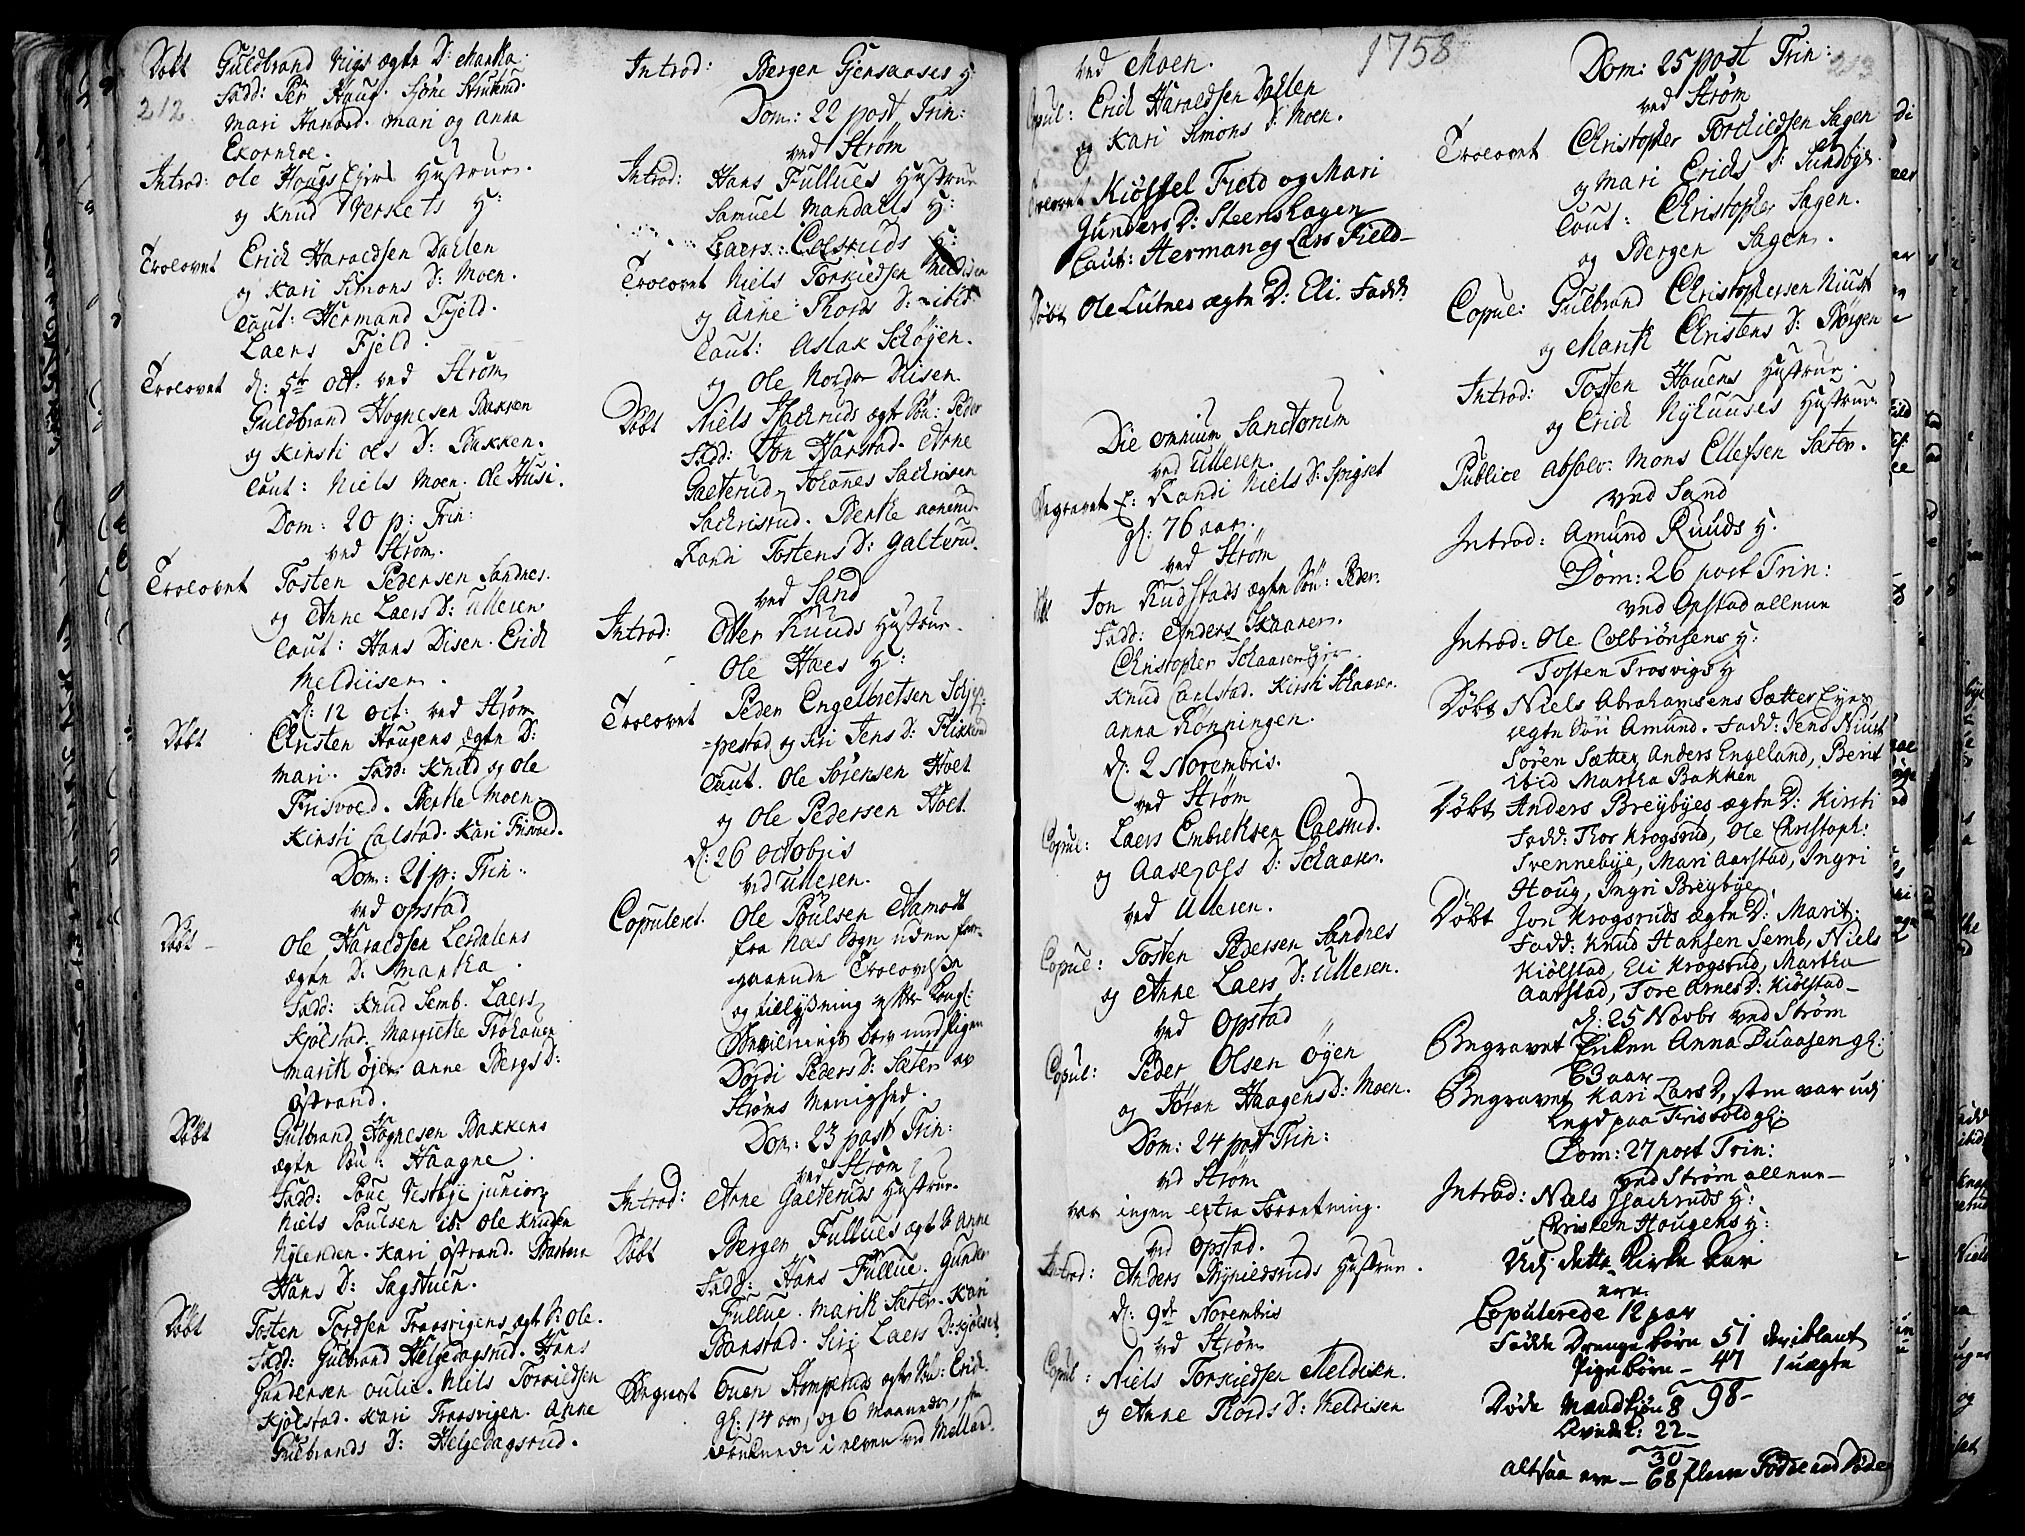 212
Døbt Guldbrand Viigs ægte D: Marta
Fadd: Per Haug. Sjøne
Mari Harard. Mari og Anna
Ekornhoe.
Introd: Ole Hougs Ejers Hustrue.
og Knud Verkets H:
Trolovet Erich Haraldsen Dahlen
og Kari Simons D: Moen.
Caut: Hermand Fjeld.
Laers Fjeld.
Trolovet d: 5te Oct: ved Strøm
Guldbrand Hognesen Bakken
og Kirsti Ols D: Bakken.
Caut: Niels Moen. Ole Husi.
Dom: 20 p: Trin:
ved Strøm.
Trolovet Tosten Pedersen Sandnes.
og Anne Laers D: Ullesen
Caut: Hans Disen. Erich
Meldiisen.
d: 12 Oct: ved Strøm
Døbt Christen Haugens ægte D:
Mari. Fadd: Knud og Ole
Frisvold. Berthe Moen.
Kirsti Calstad. Kari Frisvold.
Dom: 21 p: Trin:
ved Opstad
Døbt Ole Haraldsen Lerdalens
ægte D: Martha.
Fadd: Knud Semb. Laers
Kjølstad. Margrethe Trøhauen
Marit Øjer. Anne Bergs D:
Østrand.
Døbt Gulbrand Hognesen Bakkens
ægte Søn: Haagne.
Fadd: Poul Vestbye junior
Niels Poulsen ib: Ole Knudsen
Nylenden. Kari Østrand. Barbra
Hans D: Sagstuen.
Døbt Tosten Tordsen Traasvigens ægt S: Ole.
Fadd: Gulbrand Helgedagsrud. Hans
Gundersen Oulie. Niels Torkildsen
Kjølstad. Kari Traasvigen. Anne
Gulbrands D: Helgedagsrud.
Introd: Bergen Gjersaases H:
Dom: 22 post Trin:
ved Strøm
Introd: Hans Fullues Hustrue
Samuel Mandaels H:
Laers Colsruds H:
Trolovet Niels Torkildsen Meldisen
og Anne Thords D: ibid
Caut: Aslak Schøjen.
og Ole Nordre Disen.
Døbt Niels Sachruds ægte Søn: Peder
Fadd: Jon Harstad. Arne
Galterud. Johannes Sachrisen
Sachristrud. Berthe
Randi Tostens D: Galterud.
ved Sand
Introd: Otter Ruuds Hustrue.
Ole Haes H:
Trolovet Peder Engelbretsen Schjep-
pestad og Siri Jens D: Flikkerud
Caut. Ole Sørensen Hoel
og Ole Pedersen Hoel.
d: 26 Octobris
ved Ullesen.
Copuleret. Ole Poulsen Aamodt
fra Næs Sogn uden for-
egaaende Trolovelse
og tillysning efter Kongl:
Bevilnings brev med Pigen
Dordi Peders D: Sæter av
Strøms Menighed.
Dom: 23 post Trin:
ved Strøm
Introd: Arne Galteruds Hustrue.
Døbt Bergen Fullues ægt D: Anne
Fadd: Hans Fullue. Gunder
Fullue. Marit Sæter. Kari
Banstad. Siri Laers D: Kjølset
Begravet Ouen Stomperuds ægte Søn: Erich
gl: 14 aar, og 6 Maaneder, som
druknede i elven ved Mellad.
1758
ved Moen.
Copul: Erich Haraldsen Dahlen
og Kari Simons D: Moen.
Trolovet Kiøstel Field og Mari
Gunders D: Steenshagen
Caut: Herman og Lars Field
Døbt Ole Lutnes ægte D: Eli. Fadd:
Die omnium Sanctorum
ved Ullesen.
Begravet E: Randi Niels D: Spigset
gl: 76 aar.
ved Strøm
Døbt Jon Rudstads ægte Søn: Peder
Fadd: Anders Skaaren.
Christopher Schaaren
Knud Carlstad. Kirsti Schaaren.
Anna Rønningen.
d: 2 Novembris.
ved Strøm
Copul: Laers Embretsen Colsrud.
og Aase Ols D: Schaaren.
ved Ullesen.
Copul: Tosten Pedersen Sandnes
og Anne Laers D: Ullesen.
ved Opstad
Copul: Peder Olsen Øjen
og Jøran Haagens D: Moen.
Dom: 24 post Trin:
ved Strøm
var ingen extra Forretning.
ved Opstad.
Introd: Anders Bynildsruds Hustrue.
d: 9de Novembris
ved Strøm
Copul: Niels Torkildsen Meldisen.
og Anne Thords D: Meldisen
213
Dom: 25 post Trin:
ved Strøm
Trolovet Christopher Torkildsen Sagen
og Mari Erichs D: Sundbye.
Caut: Christopher Sagen.
og Bergen Sagen.
Copul: Gulbrand Christophersen Niust
og Marit Christens D: Børgen
Introd: Tosten Hauens Hustrue.
og Erich Nyhuuses Hustrue
Publice absolv: Mons Ellefsen Sæter.
ved Sand
Introd: Amund Ruuds H:
Dom: 26 post Trin:
ved Opstad allene
Introd: Ole Colbiønsens H:
Tosten Trosvigs H
Døbt Niels Abrahamsens Sætter Eyes
ægte Søn Amund. Fadd: Jens Niust
Søren Sætter, Anders Engeland, Berit
ibid Martha Bakken
Døbt Anders Breybyes ægte D: Kirsti
Fadd: Thor Krogsrud, Ole Christoph:
Svennebye, Mari Aarstad, Ingri
Houg, Ingri Breybye.
Døbt Jon Krogsruds ægte D: Marit.
Fadd: Knud Hansen Semb, Niels
Kiølstad, Eli Krogsrud, Martha
Aarstad, Tore Arnes D: Kiølstad
d: 25 Novbr ved Strøm
Begravet Enken Anna Duaasen gl:
63 aar
Begravet Kari Lars D, som var udj
Legd paa Frisvold gl:
Dom: 27 post Trin:
ved Strøm allene
Introd: Niels Sachruds H:
Christen Hougens H:
Udj dette Kirke Aar
ere
Copulerede 12 par
Fødde Drengebørn 51 deriblant
Pigebørn 47 1 uægte
98
Døde Mandkjøn 8
Qvindk: 22
30
altsaa ere 68 flere Fødde end Døde